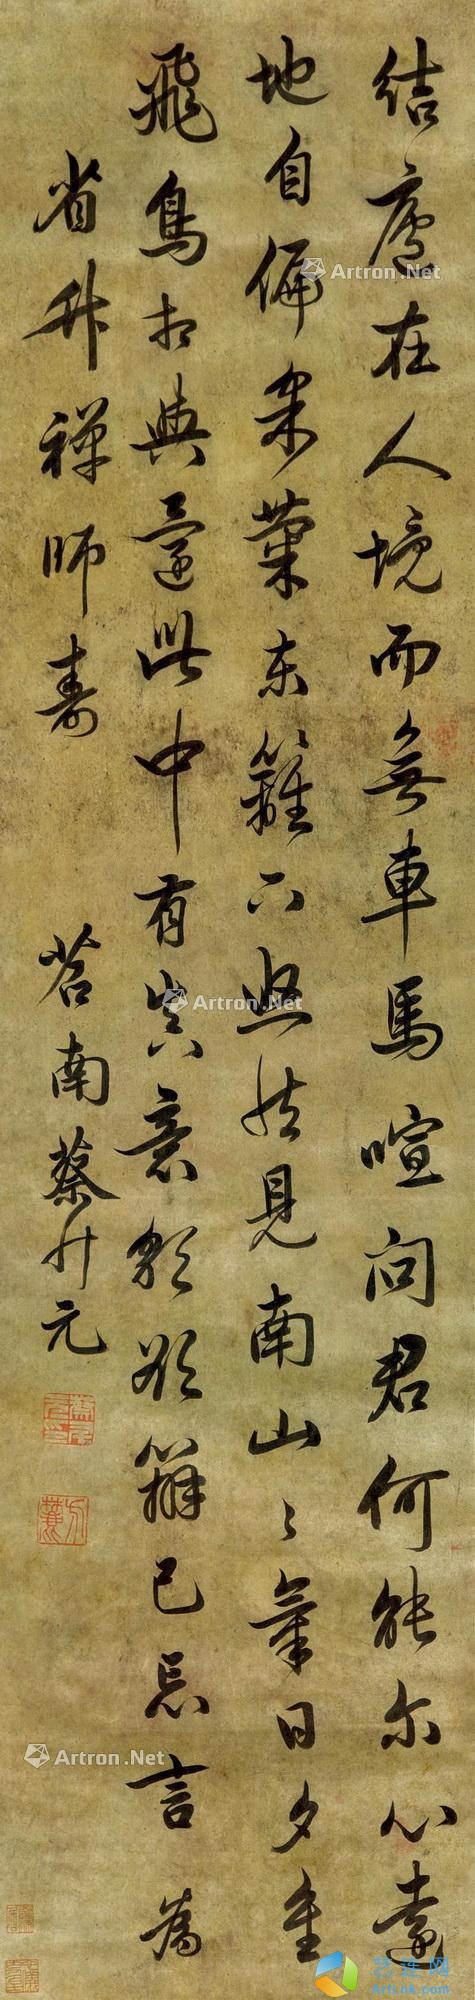 結廬在人境而無車馬喧问君何能尔心遠
地自偏采菊东籬下悠然見南山〻氣日夕佳
飛鳥相與還此中有真意欲辨已忘言為
省禪師壽 苕南蔡升元
Artron.Net
Artron.Net
Artron.Net
艺连网
ArtLok.com